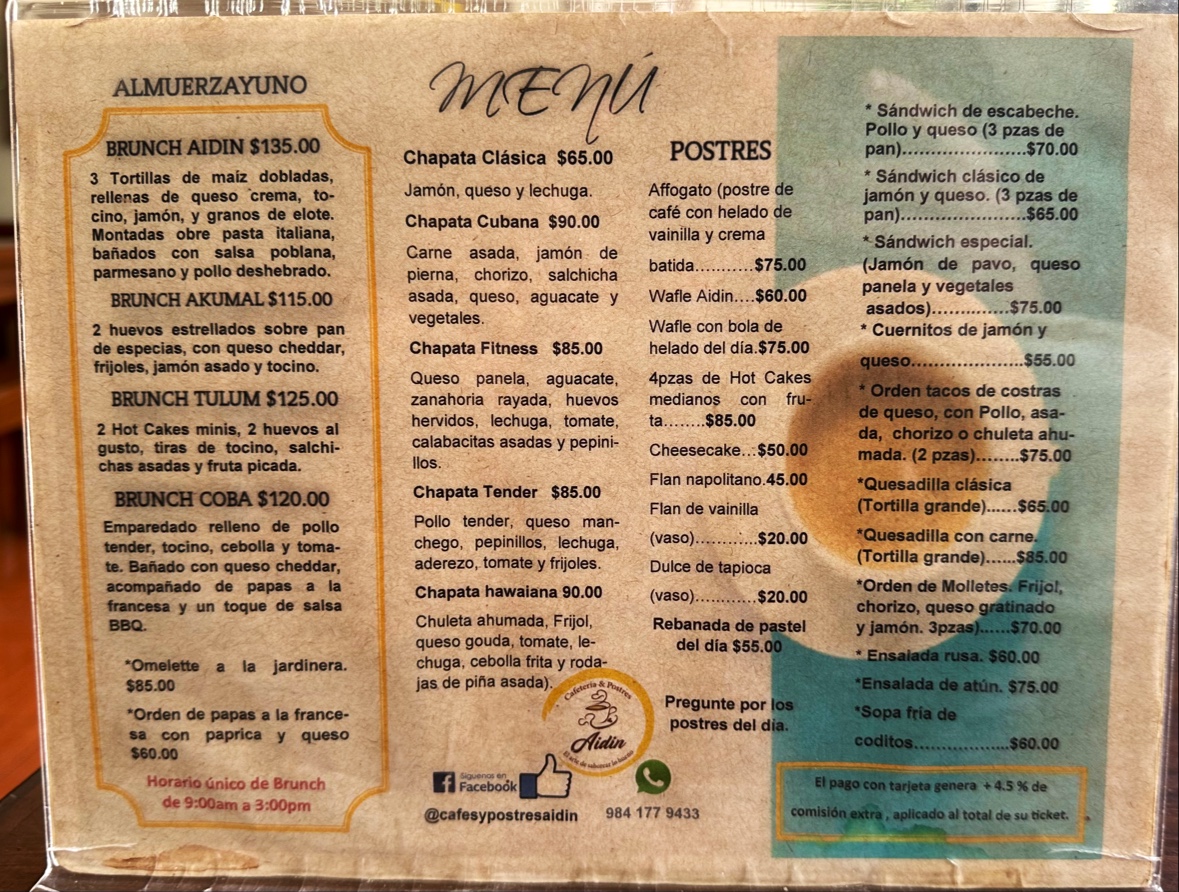 ALMUERZAYUNO
BRUNCH AIDIN $135.00
3 Tortillas de maíz dobladas,
rellenas de queso crema, to-
cino, jamón, y granos de elote.
Montadas obre pasta italiana,
bañados con salsa poblana,
parmesano y pollo deshebrado.
BRUNCH AKUMAL $115.00
2 huevos estrellados sobre pan
de especias, con queso cheddar,
frijoles, jamón asado y tocino.
BRUNCH TULUM $125.00
2 Hot Cakes minis, 2 huevos al
gusto, tiras de tocino, salchi-
chas asadas y fruta picada.
BRUNCH COBA $120.00
Emparedado relleno de pollo
tender, tocino, cebolla y toma-
te. Bañado con queso cheddar,
acompañado de papas a la
francesa y un toque de salsa
BBQ.
*Omelette a la jardinera.
$85.00
*Orden de papas a la france-
sa con paprica y queso
$60.00
Horario único de Brunch
de 9:00am a 3:00pm
MENÚ
Chapata Clásica $65.00
Jamón, queso y lechuga.
Chapata Cubana $90.00
Carne asada, jamón de
pierna, chorizo, salchicha
asada, queso, aguacate y
vegetales.
Chapata Fitness $85.00
Queso panela, aguacate,
zanahoria rayada, huevos
hervidos, lechuga, tomate,
calabacitas asadas y pepini-
llos.
Chapata Tender $85.00
Pollo tender, queso man-
chego, pepinillos, lechuga,
aderezo, tomate y frijoles.
Chapata hawaiana 90.00
Chuleta ahumada, Frijol,
queso gouda, tomate, le-
chuga, cebolla frita y roda-
jas de piña asada).
Cafetería & Postres
Aidin
El arte de saborear lo bueno
Síguenos en
Facebook
@cafesypostresaidin
984 177 9433
POSTRES
Affogato (postre de
café con helado de
vainilla y crema
batida...........$75.00
Wafle Aidin....$60.00
Wafle con bola de
helado del día.$75.00
4pzas de Hot Cakes
medianos con fru-
ta........$85.00
Cheesecake...$50.00
Flan napolitano.45.00
Flan de vainilla
(vaso)...........$20.00
Dulce de tapioca
(vaso)...........$20.00
Rebanada de pastel
del día $55.00
Pregunte por los
postres del día.
* Sándwich de escabeche.
Pollo y queso (3 pzas de
pan)......................$70.00
* Sándwich clásico de
jamón y queso. (3 pzas de
pan)......................$65.00
* Sándwich especial.
(Jamón de pavo, queso
panela y vegetales
asados)..............$75.00
* Cuernitos de jamón y
queso....................$55.00
* Orden tacos de costras
de queso, con Pollo, asa-
da, chorizo o chuleta ahu-
mada. (2 pzas)........$75.00
*Quesadilla clásica
(Tortilla grande)......$65.00
*Quesadilla con carne.
(Tortilla grande)...$85.00
*Orden de Molletes. Frijol,
chorizo, queso gratinado
y jamón. 3pzas)......$70.00
* Ensalada rusa. $60.00
*Ensalada de atún. $75.00
*Sopa fría de
coditos.................$60.00
El pago con tarjeta genera + 4.5 % de
comisión extra , aplicado al total de su ticket.